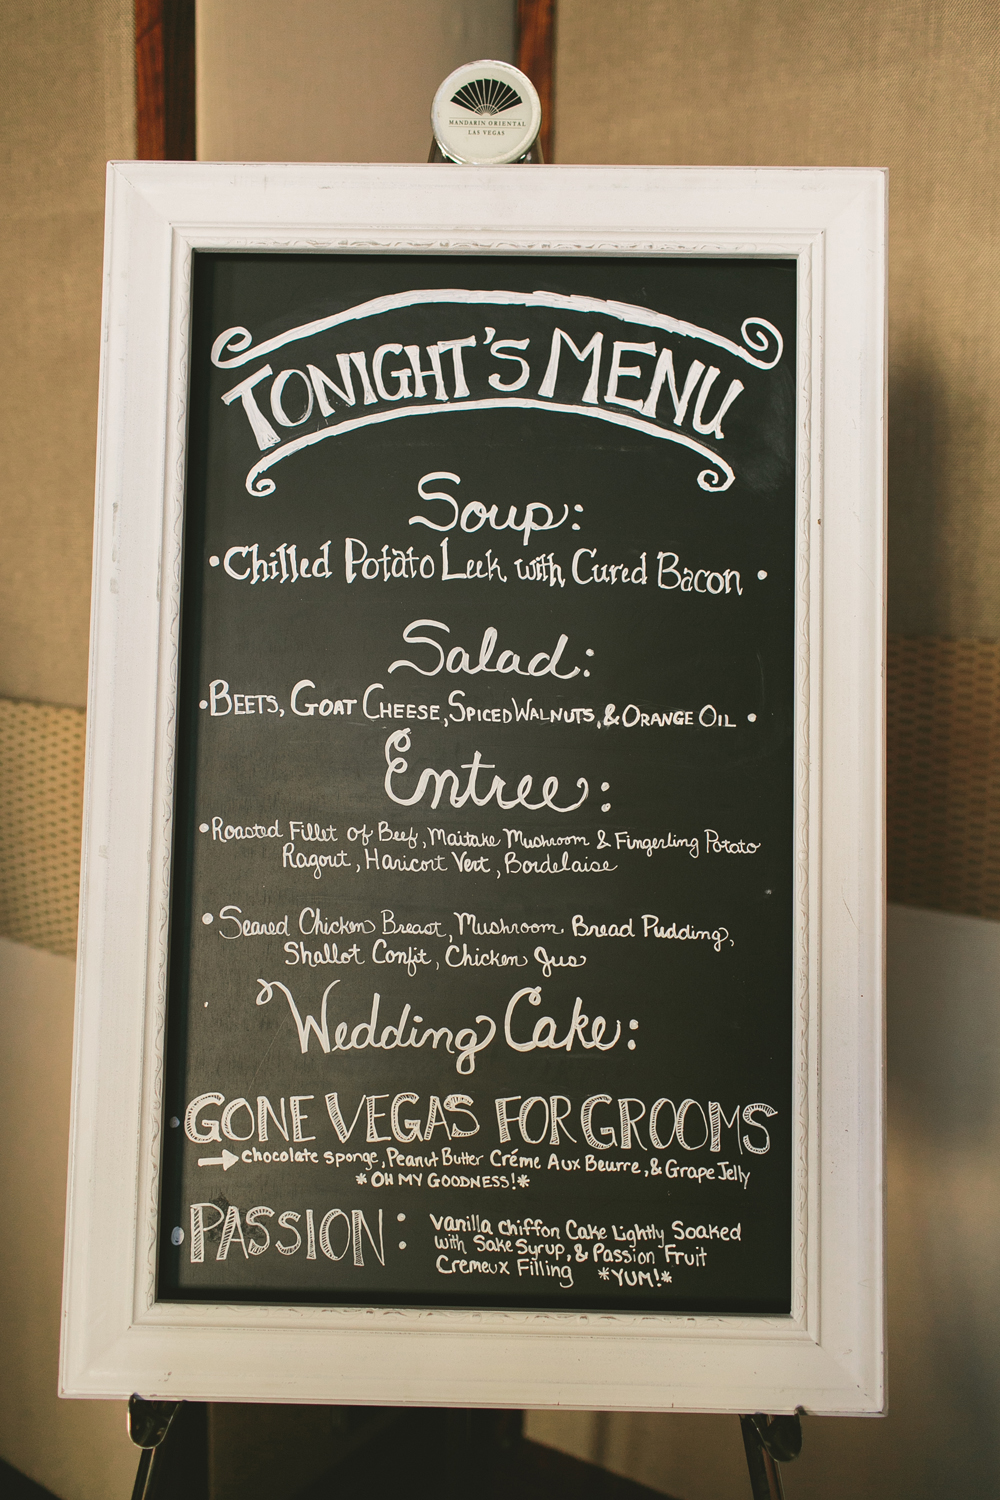 MANDARIN ORIENTAL
LAS VEGAS
TONIGHT'S MENU
Soup:
•Chilled Potato Leek with Cured Bacon •
Salad:
•BEETS, GOAT CHEESE, SPICED WALNUTS, & ORANGE OIL •
Entree:
•Roasted Fillet of Beef, Maitake Mushroom & Fingerling Potato
Ragout, Haricort Vert, Bordelaise
•Seared Chicken Breast, Mushroom Bread Pudding,
Shallot Confit, Chicken Jus
Wedding Cake:
• GONE VEGAS FOR GROOMS
→ chocolate sponge, Peanut Butter Créme Aux Beurre, & Grape Jelly
*OH MY GOODNESS!*
• PASSION: Vanilla Chiffon Cake Lightly Soaked
with Sake Syrup, & Passion Fruit
Cremeux Filling *YUM!*